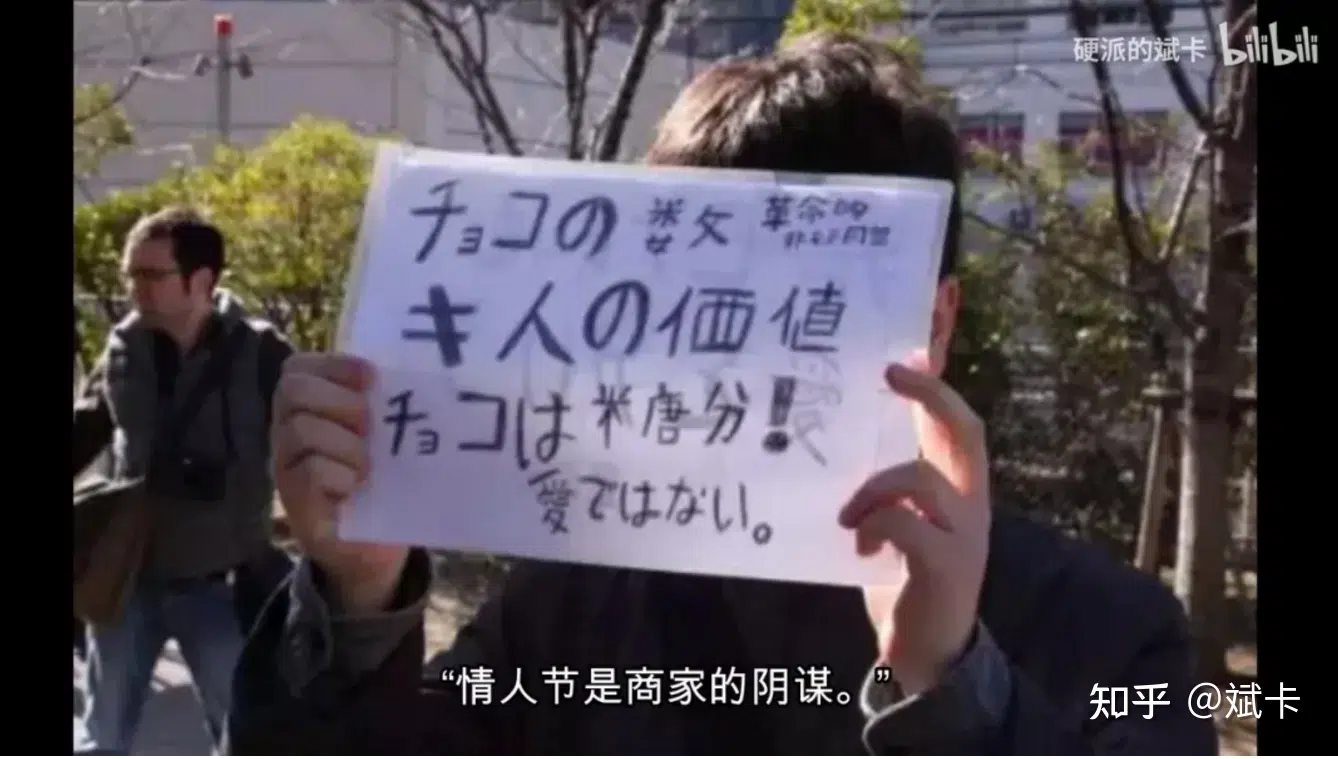 硬派的斌卡 bilibili
チョコの数 革命的
非モテ同盟
キ人の価値
チョコは糖分!!
愛ではない。
“情人节是商家的阴谋。”
知乎 @斌卡